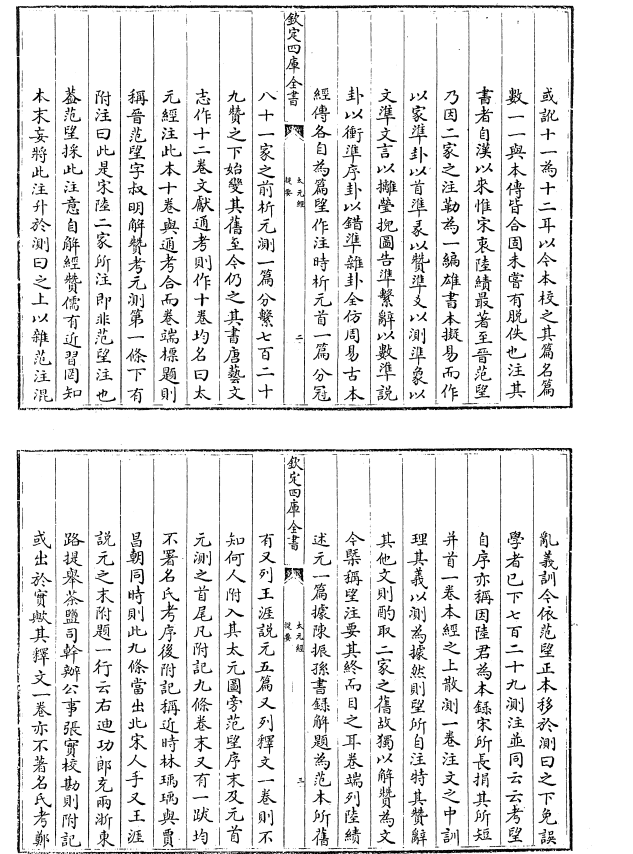 或訛十一為十二耳以今本校之其篇名篇
數一一與本傳皆合固未嘗有脫佚也注其
書者自漢以來惟宋衷陸績最著至晉范望
乃因二家之注勒為一編雄書本擬易而作
以家準卦以首準彖以贊準爻以測準象以
文準文言以攡瑩掜圖告準繫辭以數準說
卦以衝準序卦以錯準雜卦全仿周易古本
經傳各自為篇望作注時析元首一篇分冠
欽定四庫全書
太元經
提要
二
八十一家之前析元測一篇分繫七百二十
九贊之下始變其舊至今仍之其書唐藝文
志作十二卷文獻通考則作十卷均名曰太
元經注此本十卷與通考合而卷端標題則
稱晉范望字叔明解贊考元測第一條下有
附注曰此是宋陸二家所注即非范望注也
葢范望採此注意自解經贊儒有近習罔知
本末妄將此注升於測曰之上以雜范注混
亂義訓今依范望正本移於測曰之下免誤
學者已下七百二十九測注並同云云考望
自序亦稱因陸君為本錄宋所長捐其所短
并首一卷本經之上散測一卷注文之中訓
理其義以測為據然則望所自注特其贊辭
其他文則酌取二家之舊故獨以解贊為文
今槩稱望注要其終而目之耳卷端列陸績
述元一篇據陳振孫書錄解題為范本所舊
欽定四庫全書
太元經
提要
三
有又列王涯說元五篇又列釋文一卷則不
知何人附入其太元圖旁范望序末及元首
元測之首尾凡附記九條卷末又有一跋均
不署名氏考序後附記稱近時林瑀瑀與賈
昌朝同時則此九條當出北宋人手又王涯
說元之末附題一行云右迪功郎充兩浙東
路提舉茶鹽司幹辦公事張寔校勘則附記
或出於寔歟其釋文一卷亦不著名氏考鄭